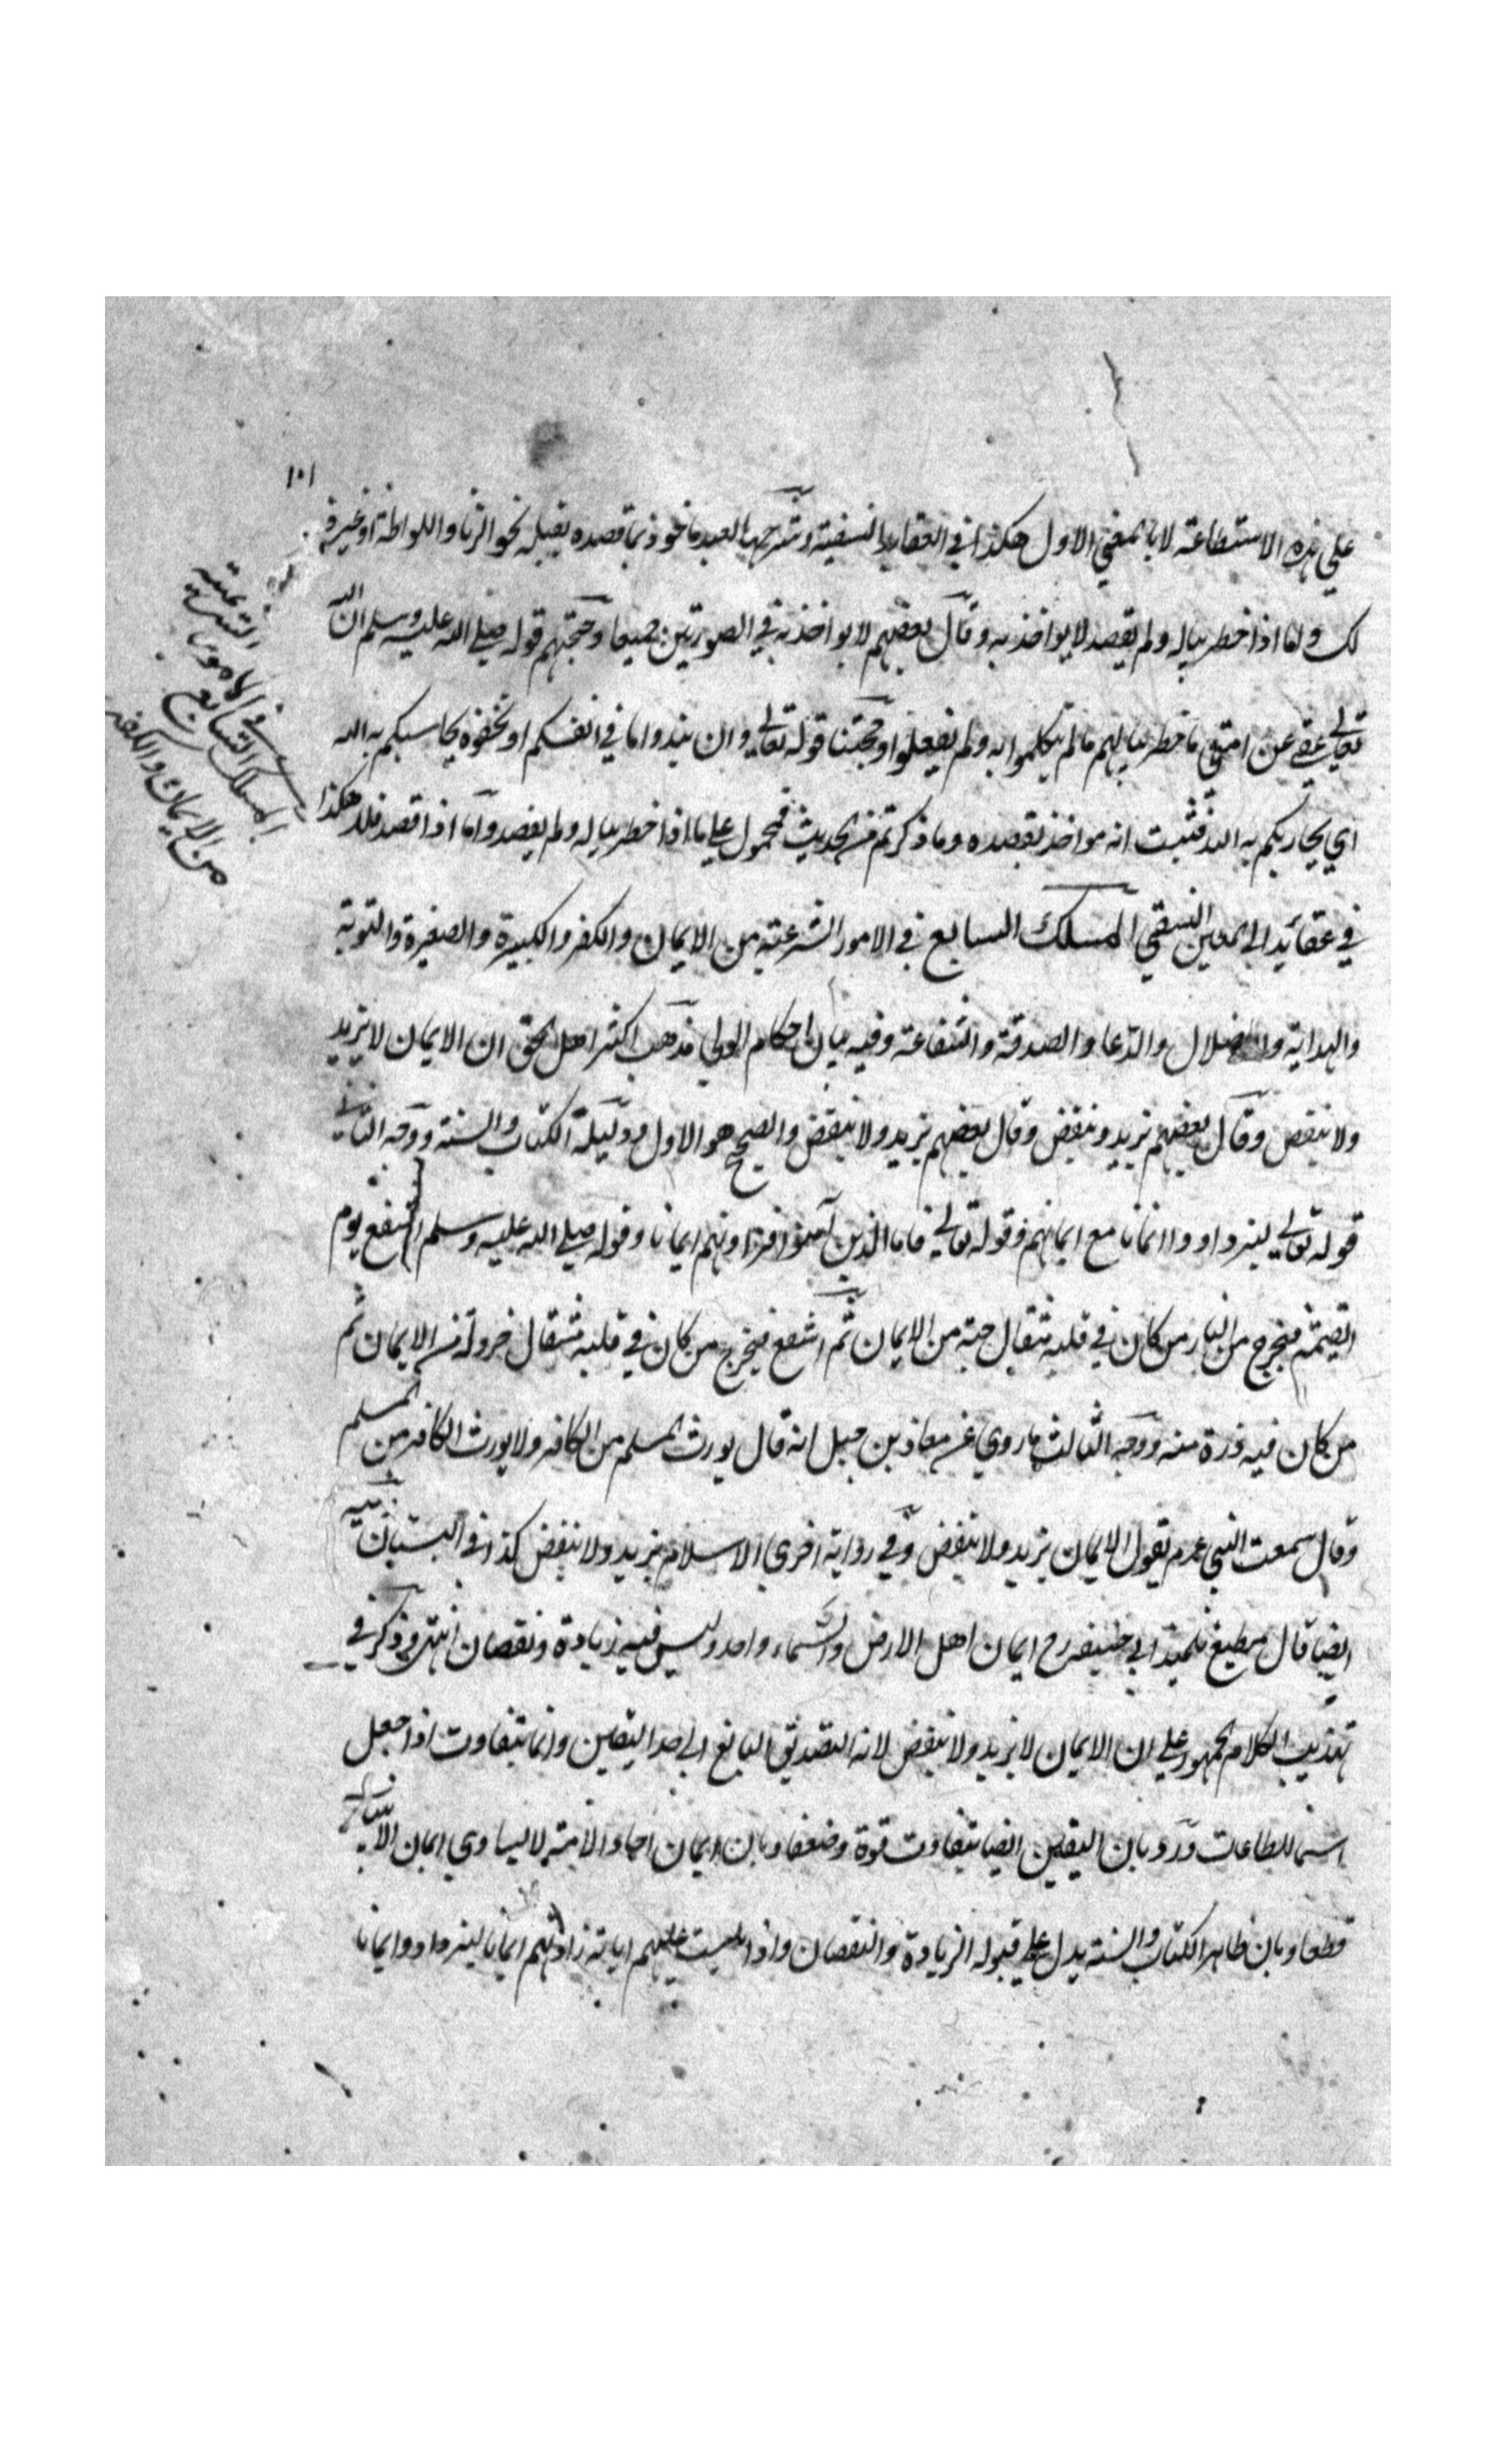 ١٠١
علي هذه الاستطاعة لا بالمعني الاول هكذا في العقايد النسفية وشرحها العبد ماخوذ بما قصده بقلبه نحو الزنا واللواطة او غير ذ
لك واما اذا خطر بباله ولم يقصد لا يواخذ به وقال بعضهم لا يواخذ به في الصورتين جميعا وحجتهم قوله صلي الله عليه وسلم ان الله
تعالي عفي عن امتي ما خطر ببالهم ما لم يتكلموا به ولم يفعلوا وحجتنا قوله تعالي وان تبدوا ما في انفسكم او تخفوه يحاسبكم به الله
اي يجازيكم به الله فثبت انه مواخذ بقصده وما ذكرتم من الحديث فمحمول علي ما اذا خطر بباله ولم يقصد واما اذا قصد فلا هكذا
في عقائد ابي المعين النسفي المسلك السابع في الامور الشرعية من الايمان والكفر والكبيرة والصغيرة والتوبة
والهداية والضلال والدعا والصدقة والشفاعة وفيه بيان احكام الولي مذهب اكثر اهل الحق ان الايمان لا يزيد
ولا ينقص وقال بعضهم يزيد وينقص وقال بعضهم يزيد ولا ينقص والصحيح هو الاول ودليله الكتاب والسنة ووجه الثاني
قوله تعالي ليزدادوا ايمانا مع ايمانهم وقوله تعالي فاما الذين آمنوا فزادتهم ايمانا وقوله صلي الله عليه وسلم اشفع يوم
القيمة فيخرج من النار من كان في قلبه مثقال حبة من الايمان ثم اشفع فيخرج من كان في قلبه مثقال خردلة من الايمان ثم
من كان فيه ذرة منه ووجه الثالث ما روي عن معاذ بن جبل انه قال يورث المسلم من الكافر ولا يورث الكافر من المسلم
وقال سمعت النبي عم يقول الايمان يزيد ولا ينقص وفي رواية اخري الاسلام يزيد ولا ينقص كذا في البستان فيه
ايضا قال مطيع تلميذ ابي حنيفة رح ايمان اهل الارض والسماء واحد وليس فيه زيادة ونقصان انتهي وذكر في
تهذيب الكلام الجمهور علي ان الايمان لا يزيد ولا ينقص لانه التصديق البالغ الي حد اليقين وانما يتفاوت اذا جعل
اسما للطاعات ورد بان اليقين ايضا يتفاوت قوة وضعفا وبان ايمان احاد الامة لا يساوي ايمان الانبياء
قطعا وبان ظاهر الكتاب والسنة يدل علي قبوله الزيادة والنقصان واذا تليت عليهم اياته زادتهم ايمانا ليزدادوا ايمانا
المسلك السابع
في الامور الشرعية
من الايمان والكفر